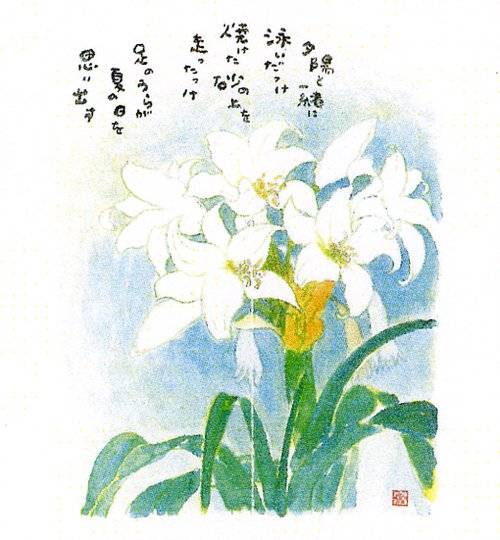 夕陽と一緒に
泳いだっけ
焼けた砂の上を
走ったっけ
足のうらが
夏の日を
思い出す